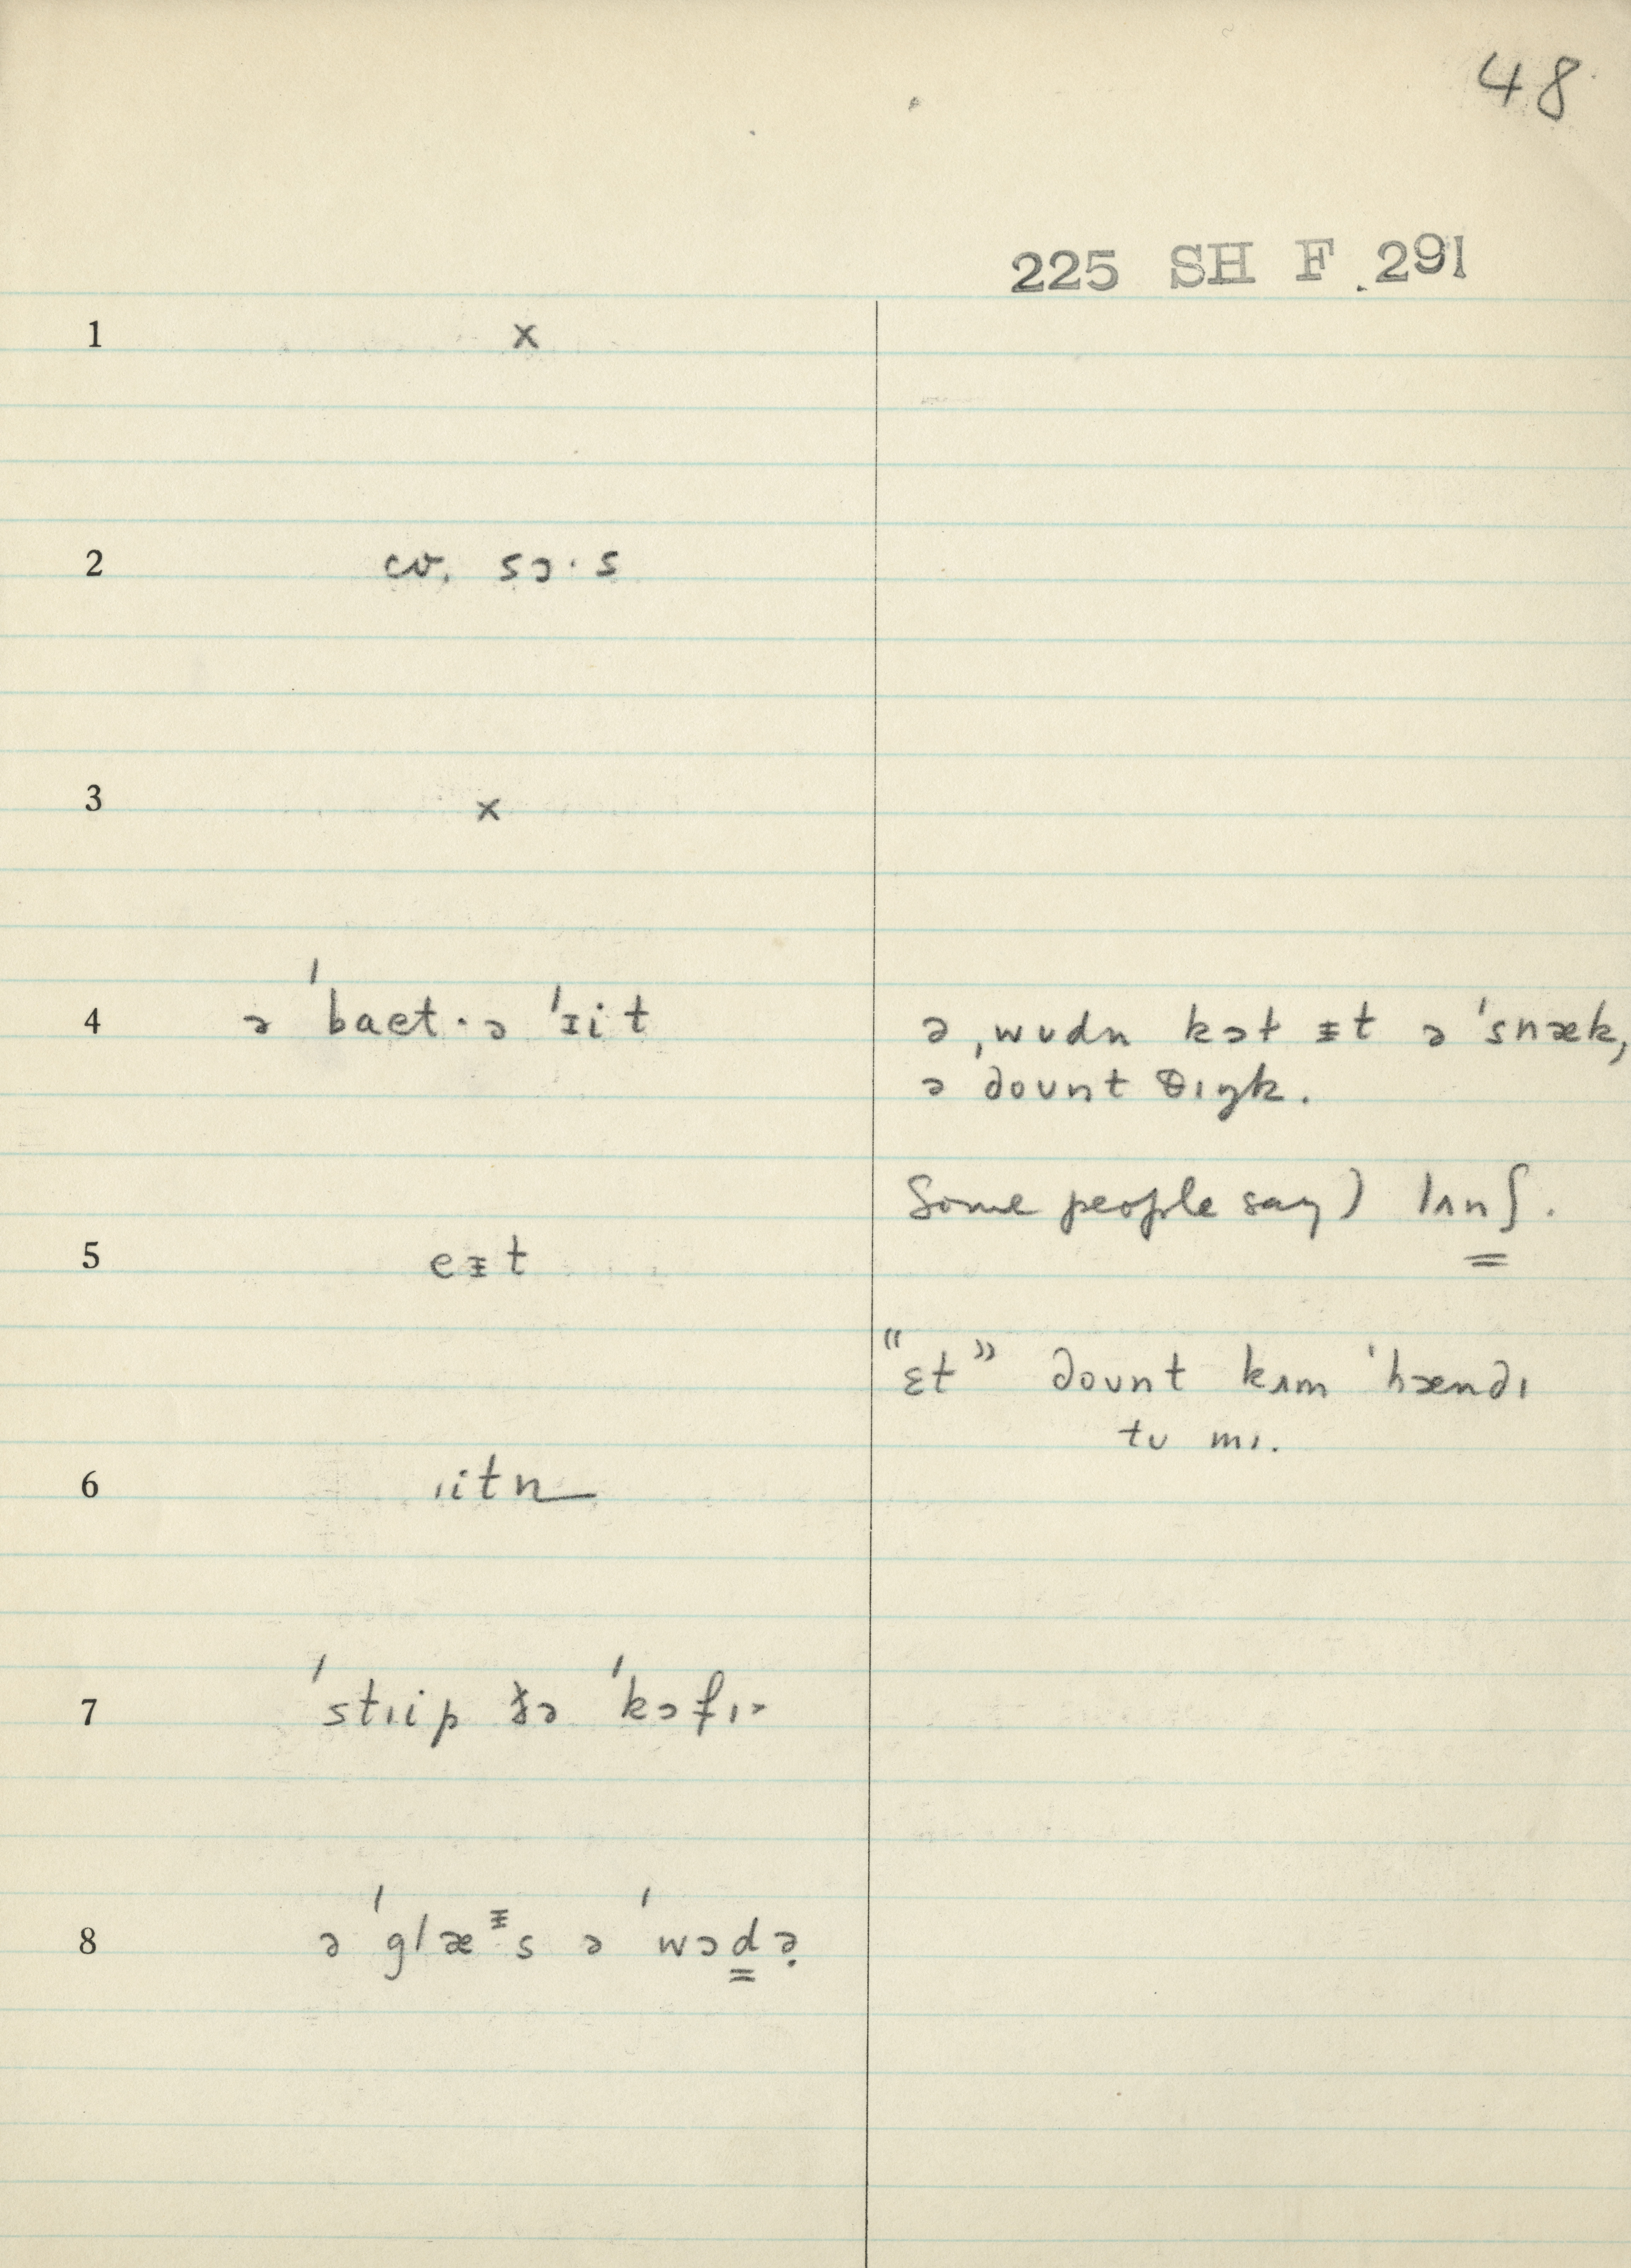 48
225 SH F 291
1 x
2 cv. sɔ·s
3 x
4 ə ˈbaet·ə ˈᵻit
ə ˌwʊdn kɔt ᵻt ə ˈsnæk,
ə dount θɪŋk.
Some people say) lʌnʃ.
5 eᵻt
"ɛt" dount kʌm ˈhændɪ
tʊ mɪ.
6 ɪitn
7 ˈstɹip ðə ˈkɔfɪ
8 ə ˈglæᵻs ə ˈwɔdə